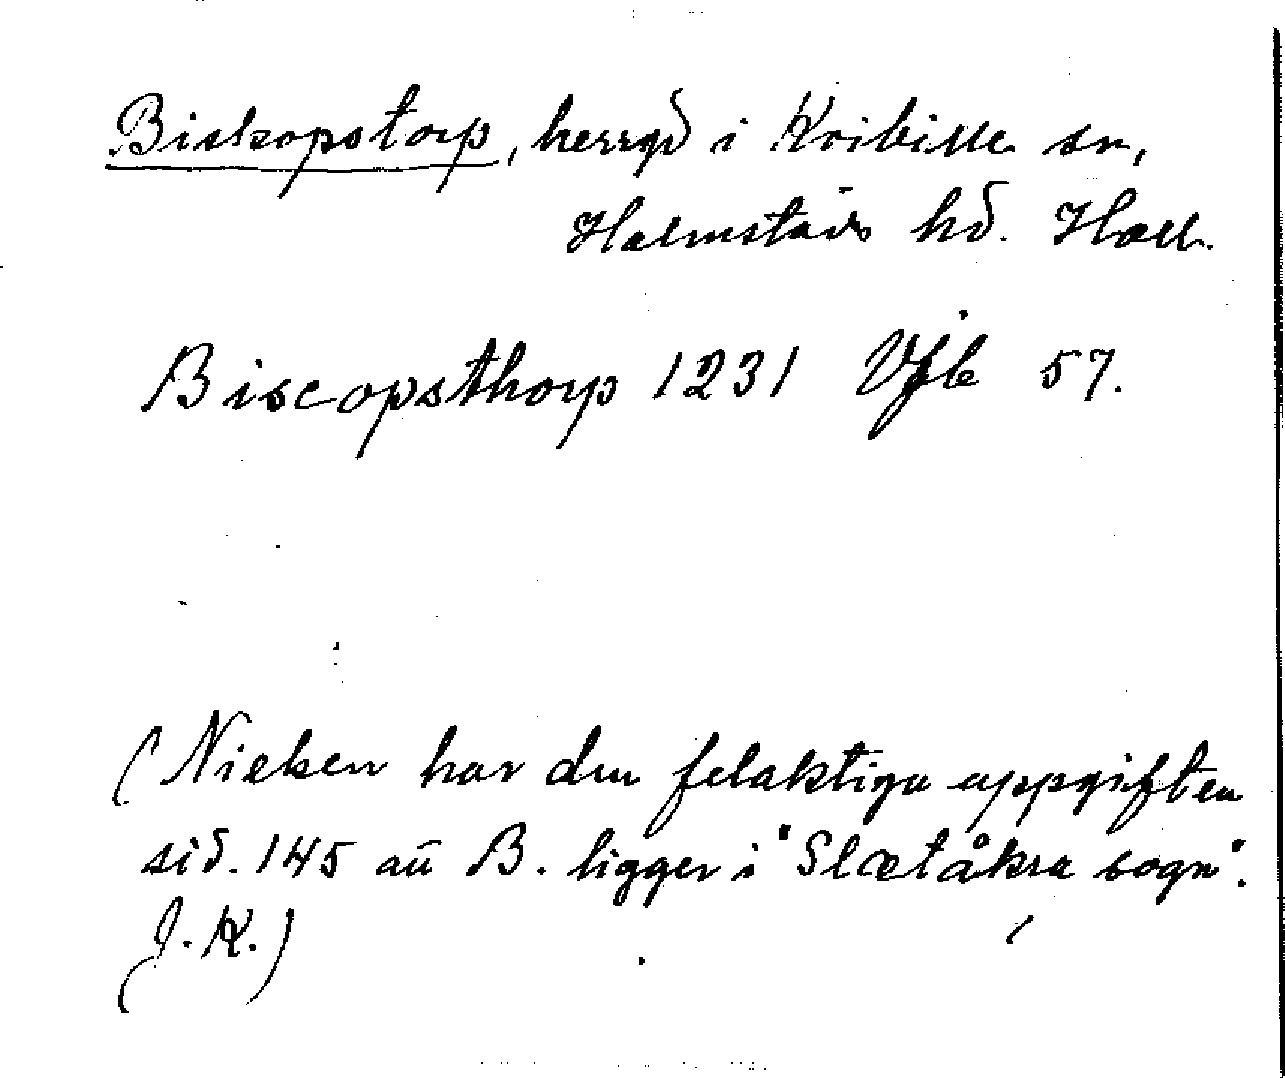 Biskopstorp, herrgd i Kvibille sn,
Halmstads hd. Hall.
Biscopsthorp 1231 VJb 57.
(Nielsen har den felaktiga uppgiften
sid. 145 att B. ligger i "Slætåkra sogn".
J. K.)